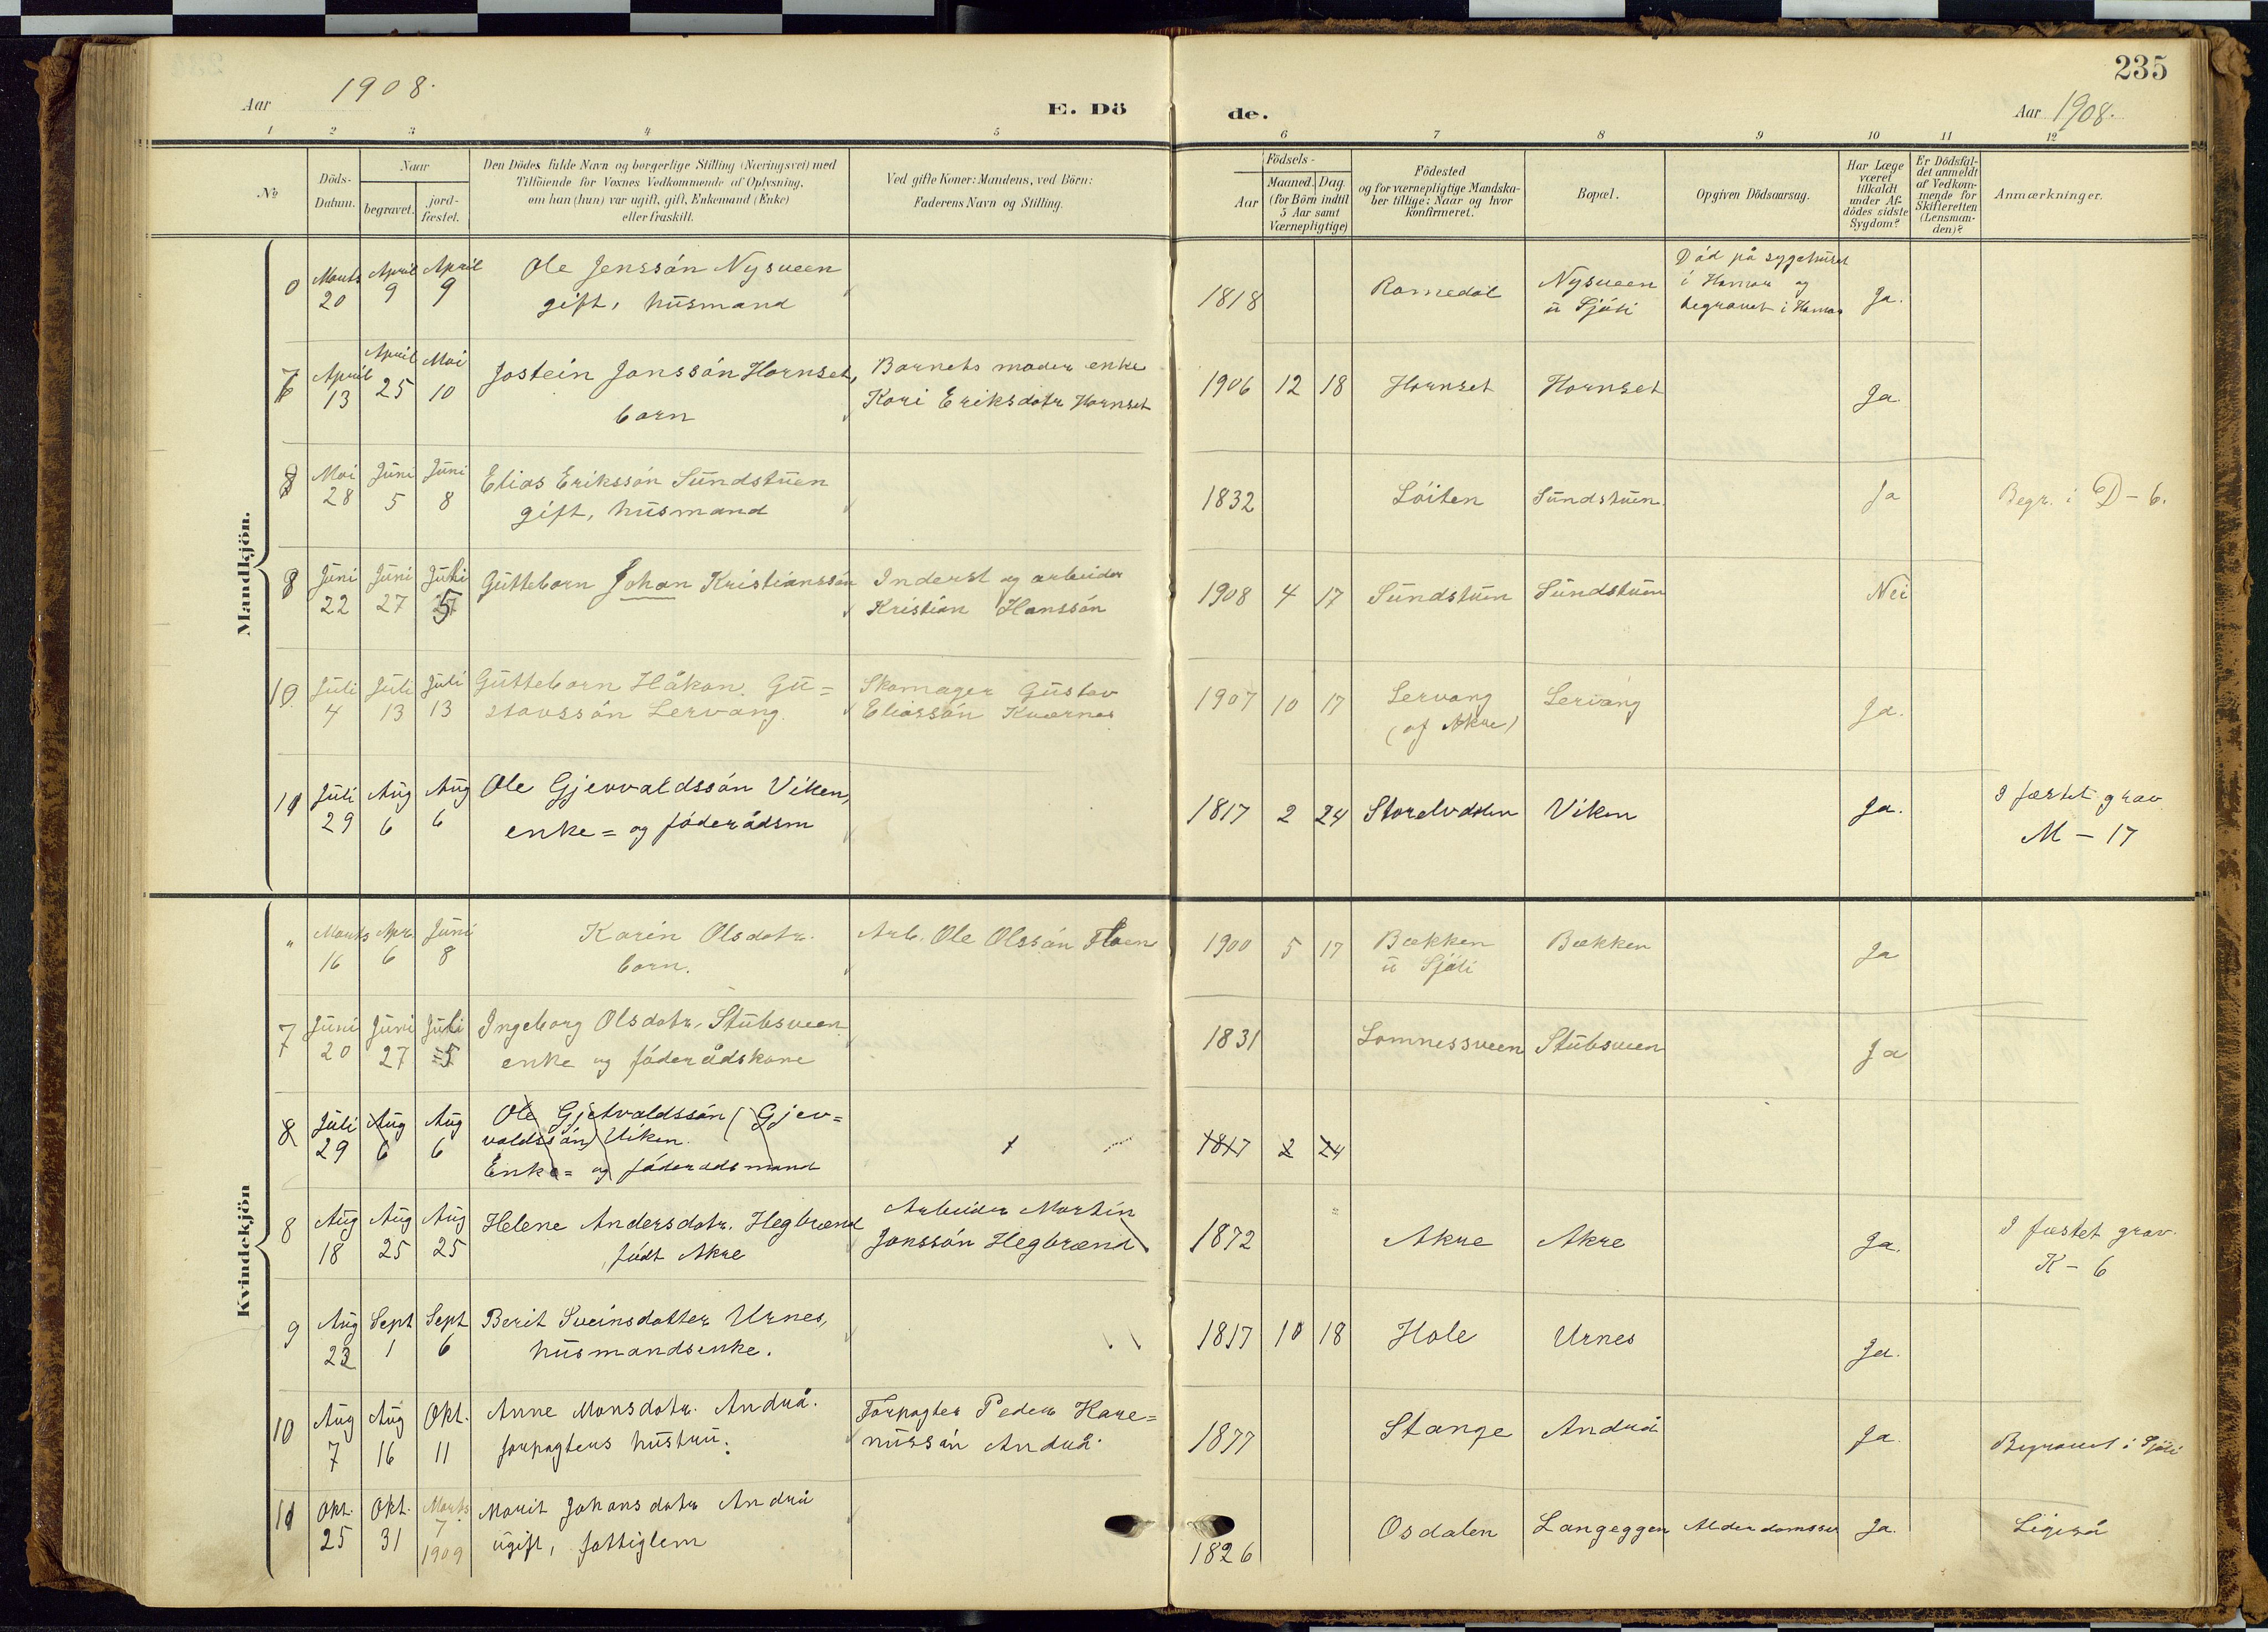 235
Aar 1908.
E. Dö
de.
Aar 1908.
1 2 3 4 5 6 7 8 9 10 11 12
No
Döds-
Datum.
Naar
begravet.
jord-
fæstet.
Den Dödes fulde Navn og borgerlige Stilling (Næringsvei) med
Tilföiende for Voxnes Vedkommende af Oplysning,
om han (hun) var ugift, gift, Enkemand (Enke)
eller fraskilt.
Ved gifte Koner: Mandens, ved Börn:
Faderens Navn og Stilling.
Födsels-
Aar
Maaned. Dag.
(for Börn indtil
5 Aar samt
Værnepligtige)
Födested
og for værnepligtige Mandska-
ber tillige: Naar og hvor
konfirmeret.
Bopæl.
Opgiven Dödsaarsag.
Har Læge
været
tilkaldt
under Af-
dödes sidste
Sygdom?
Er Dödsfal-
det anmeldt
af Vedkom-
mende for
Skifteretten
(Lensman-
den)?
Anmærkninger.
Mandkjön.
0 Marts 20 April 9 April 9 Ole Jenssön Nysveen
gift, husmand
1818 Romedal Nysveen
u Sjöli
Död på sygehuset
i Hamar og
begravet i Hamar
Ja.
7 April 13 April 25 Mai 10 Jostein Jonssön Hornset,
barn
Barnets moder enke
Kari Eriksdatr Hornset
1906 12 18 Hornset Hornset Ja.
8 Mai 28 Juni 5 Juni 8 Elias Erikssön Sundstuen
gift, husmand
1832 Löiten Sundstuen. Ja Begr. i D - 6.
8 Juni 22 Juni 27 Juli 5 Guttebarn Johan Kristianssön
Inderst og arbeider
Kristian Hanssön
1908 4 17 Sundstuen Sundstuen Nei
10 Juli 4 Juli 13 Juli 13 Guttebarn Håkon Gu=
stavssön Lervang.
Skomager Gustav
Eliassön Kværnes
1907 10 17 Lervang
(af Akre)
Lervang Ja.
11 Juli 29 Aug 6 Aug 6 Ole Gjervaldssön Viken,
enke= og föderådsm
1817 2 24 Storelvdalen Viken Ja. I fæstet grav
M - 17
Kvindekjön
" Marts 16 Apr. 6 Juni 8 Karin Olsdatr.
barn.
Arb. Ole Olssön Floen
1900 5 17 Bækken
u Sjöli
Bækken Ja
7 Juni 20 Juni 27 Juli 5 Ingeborg Olsdatr. Stubsveen
enke og föderådskone
1831 Lomnessveen Stubsveen Ja
8 Juli 29 Aug 6 Aug 6 Ole Gjetvaldssön (Gjev=
valdssön) Viken.
Enke= og föderadsmand
1817 2 24
8 Aug 18 Aug 25 Aug 25 Helene Andersdatr. Hegbrænd
födt Akre
Arbeider Martin
Jonssön Hegbrænd
1872 Akre Akre Ja. I fæstet grav.
K - 6
9 Aug 23 Sept 1 Sept 6 Berit Sveinsdatter Urnes,
husmandsenke.
1817 10 18 Hole Urnes Ja.
10 Aug 7 Aug 16 Okt. 11 Anne Monsdatr. Andrå.
forpagters hustru.
Forpagter Peder Hare=
nussön Andrå.
1877 Stange Andrå Ja. Begravet i Sjöli
11 Okt. 25 Okt. 31 Marts 7 1909 Marit Johansdatr Andrå
ugift, fattiglem
1826 Osdalen Langeggen Alderdomssv Ja.